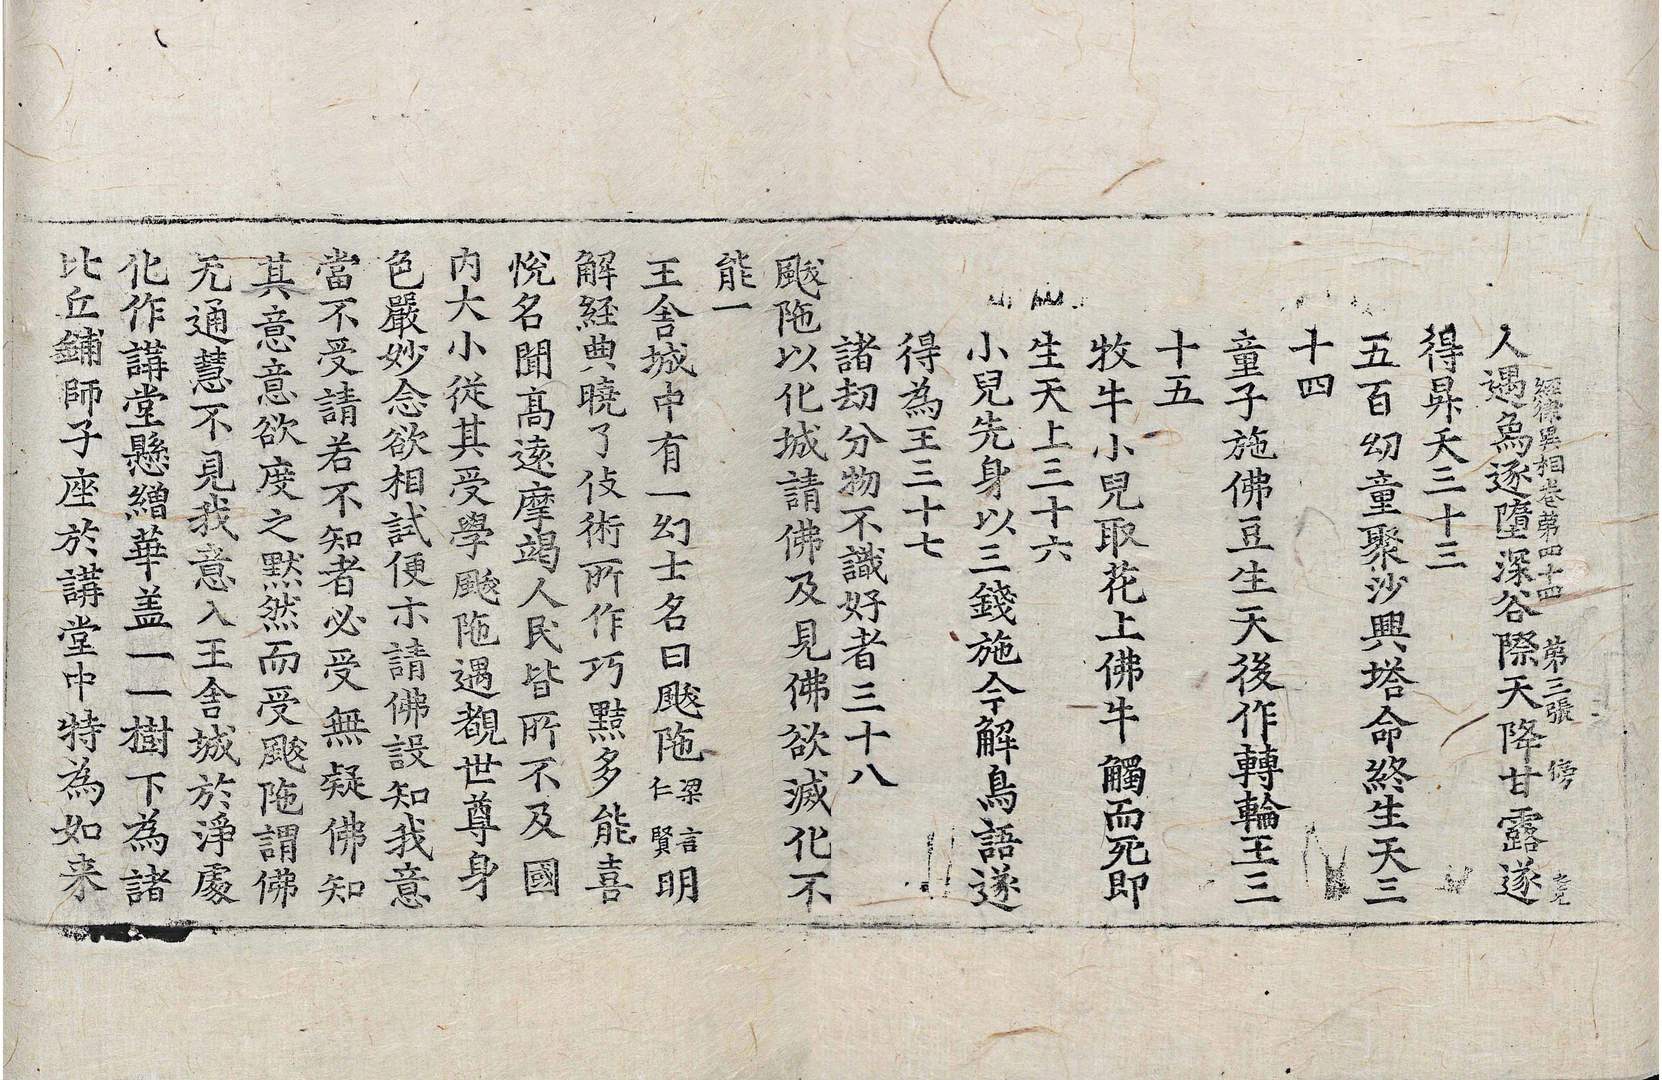 經律異相卷第四十四 第三張 傍
人遇象逐墮深谷際天降甘露遂
得昇天三十三
五百幼童聚沙興塔命終生天三
十四
童子施佛豆生天後作轉輪王三
十五
牧牛小兒取花上佛牛觸而死即
生天上三十六
小兒先身以三錢施今解鳥語遂
得為王三十七
諸劫分物不識好者三十八
颰陁以化城請佛及見佛欲滅化不
能一
王舍城中有一幻士名曰颰陁梁言仁賢明
解經典曉了伎術所作巧黠多能喜
悅名聞高遠摩竭人民皆所不及國
內大小從其受學颰陁遇覩世尊身
色嚴妙念欲相試便亦請佛設知我意
當不受請若不知者必受無疑佛知
其意意欲度之默然而受颰陁謂佛
无通慧不見我意入王舍城於淨處
化作講堂懸繒華盖一一樹下為諸
比丘鋪師子座於講堂中特為如来